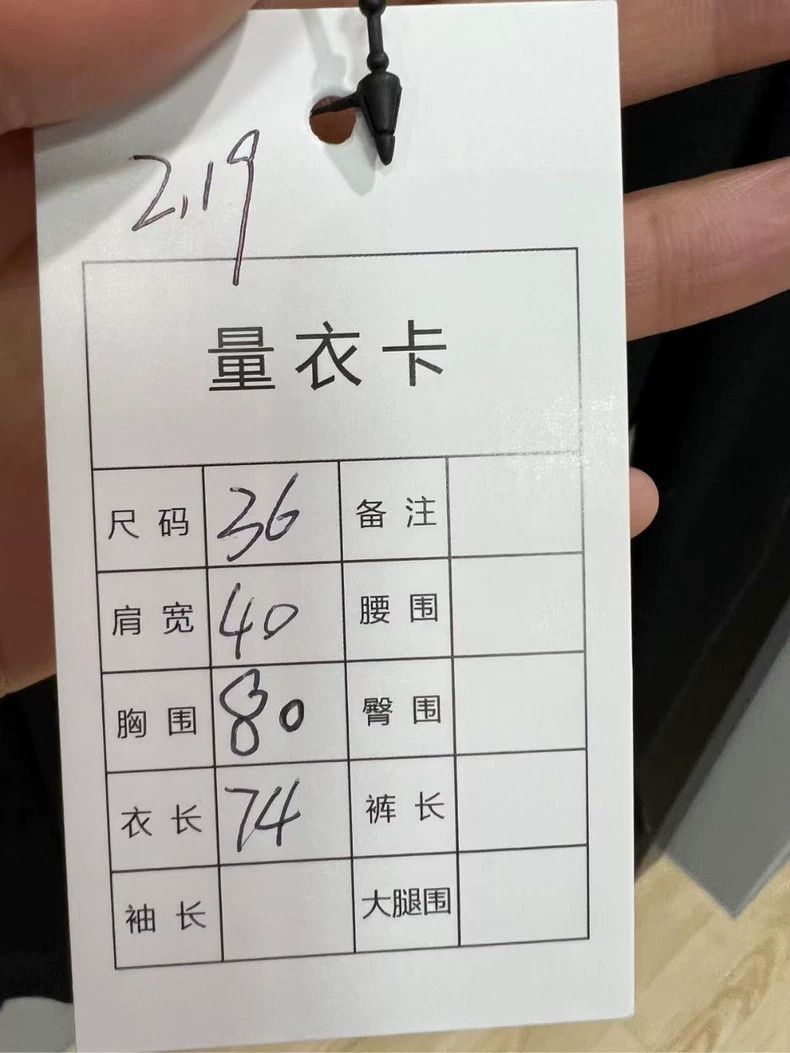 2.19
量衣卡
尺码 36 备注
肩宽 40 腰围
胸围 80 臀围
衣长 74 裤长
袖长 大腿围